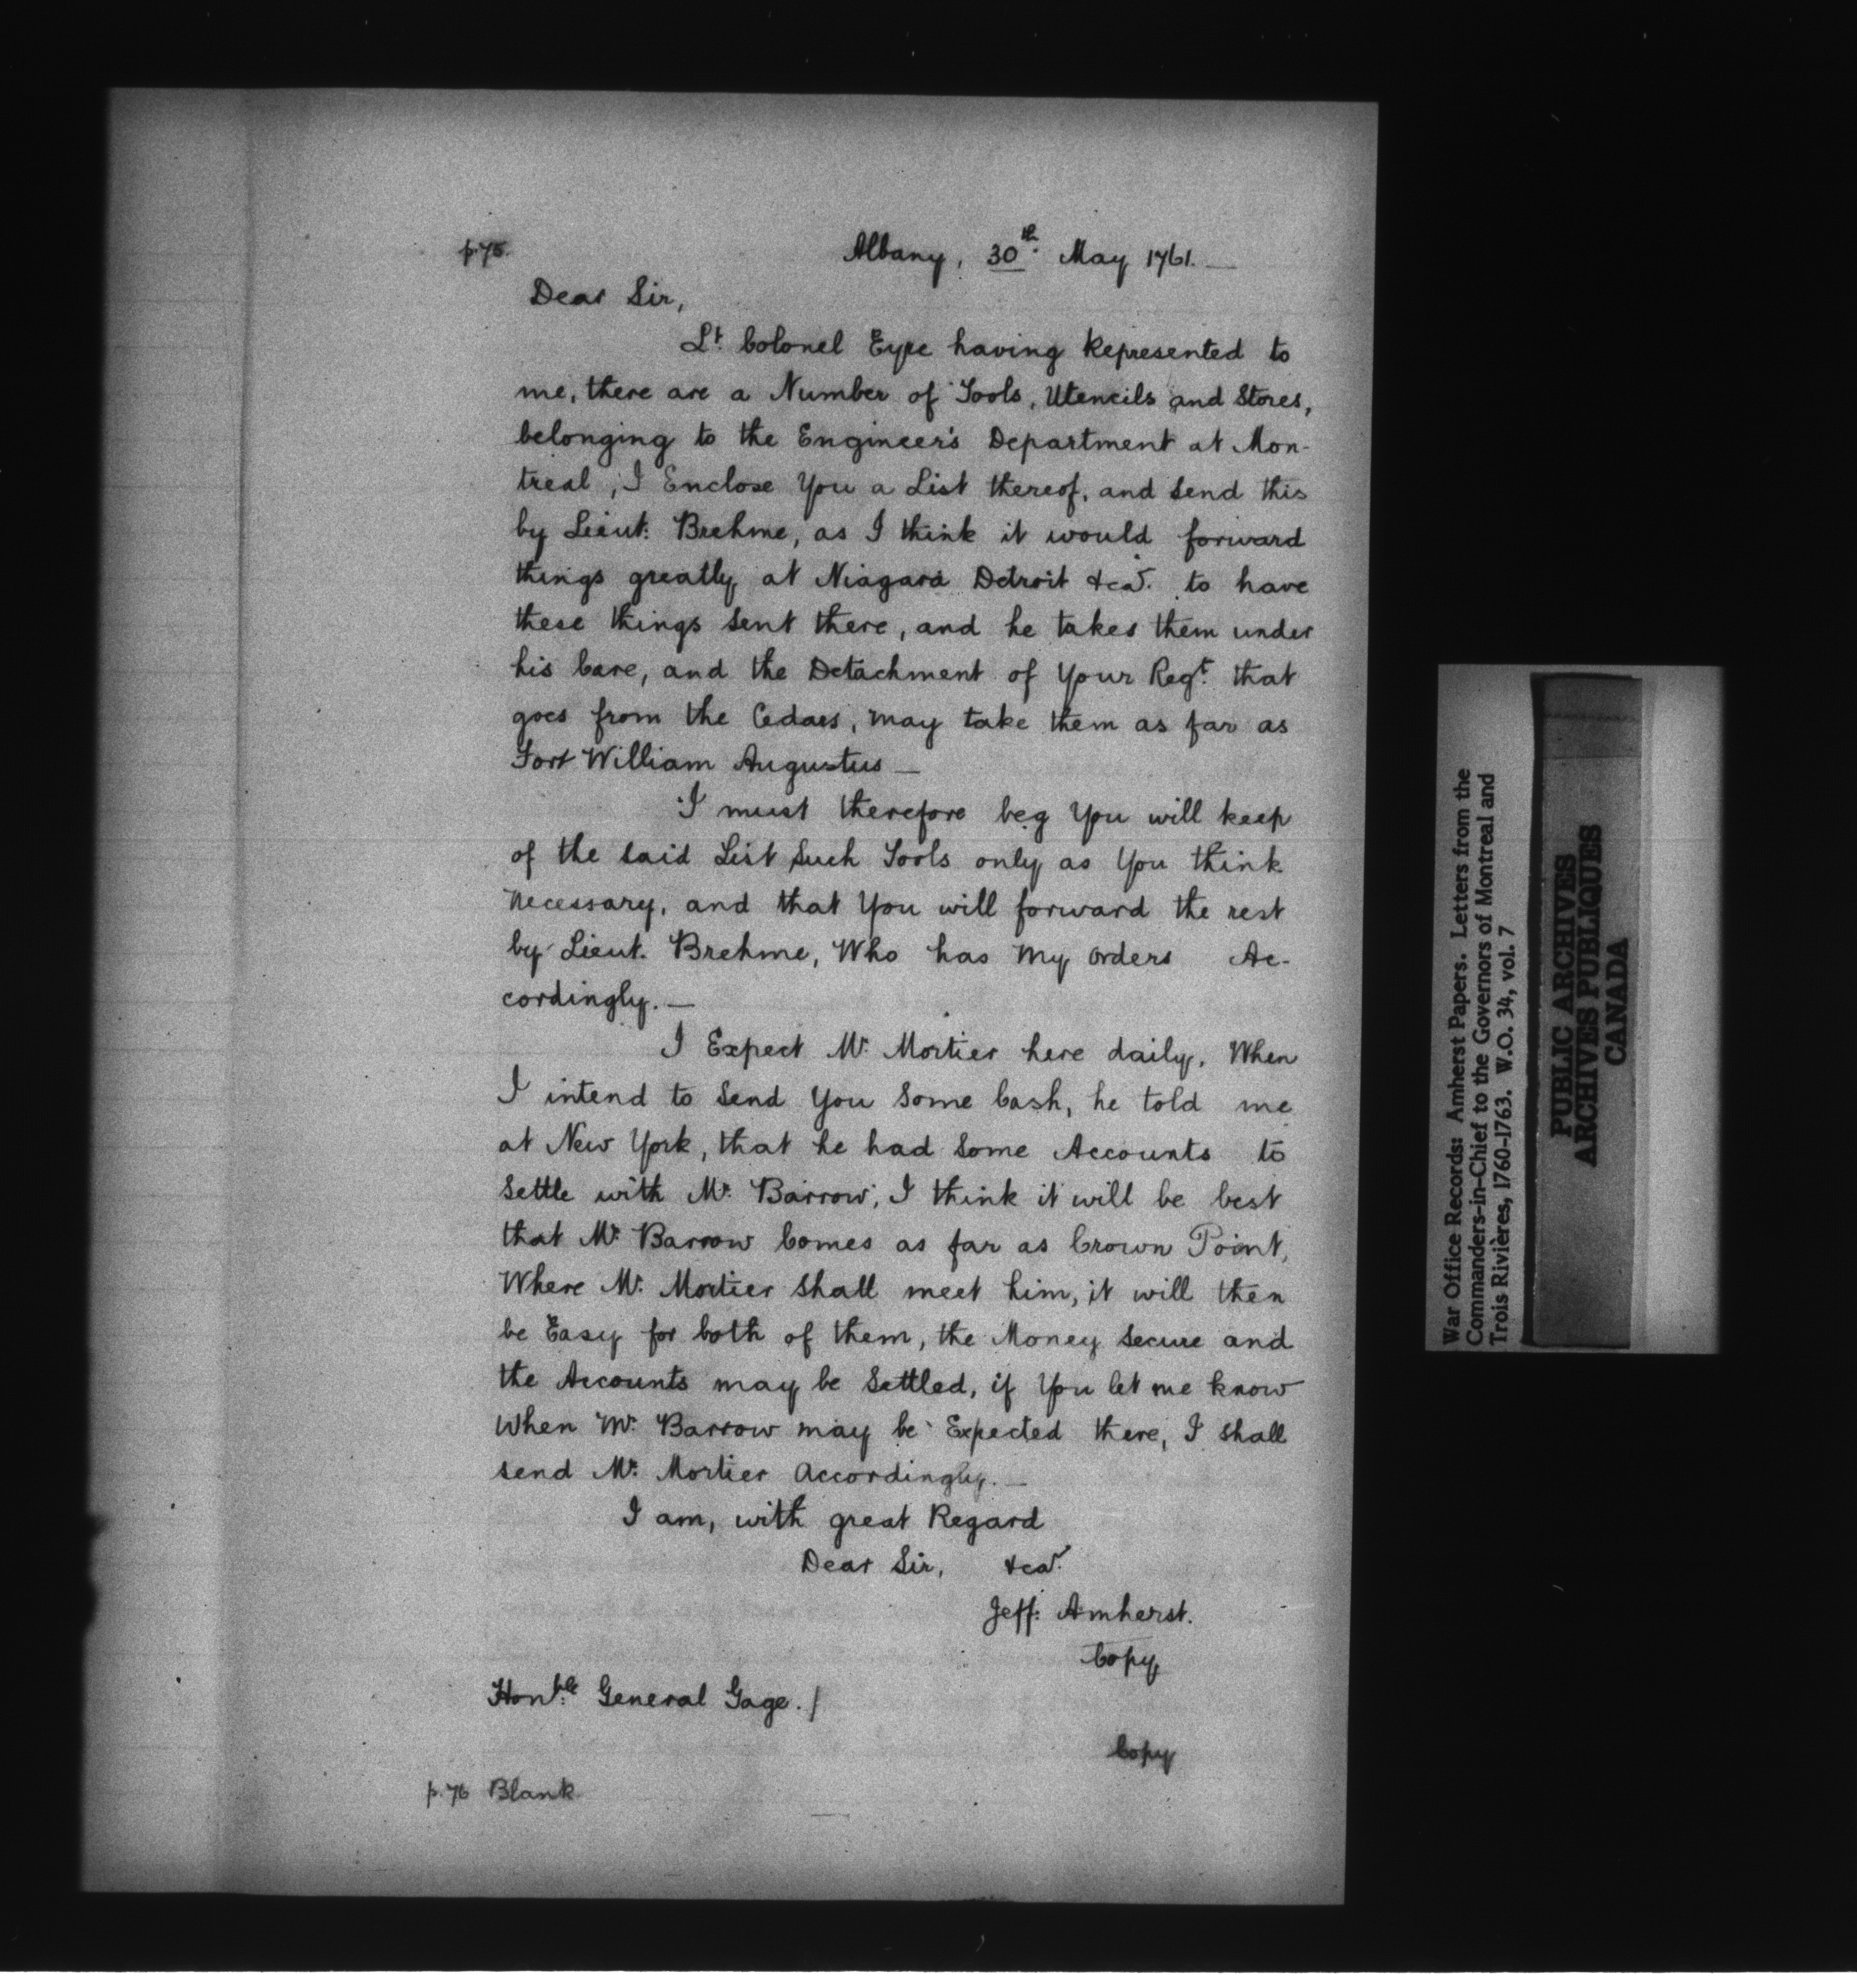 p.75.
Albany, 30th. May 1761.—
Dear Sir,
Lt. Colonel Eyre having Represented to
me, there are a Number of Tools, Utencils and Stores,
belonging to the Engineer's Department at Mon-
treal, I Enclose You a List thereof, and Send this
by Lieut: Brehme, as I think it would forward
things greatly at Niagara Detroit &ca. to have
these things Sent there, and he takes them under
his Care, and the Detachment of Your Regt. that
goes from the Cedars, may take them as far as
Fort William Augustus —
I must therefore beg You will keep
of the Said List Such Tools only as You think
Necessary, and that You will forward the rest
by Lieut. Brehme, Who has My Orders Ac-
cordingly. —
I Expect Mr. Mortier here daily, When
I intend to Send You Some Cash, he told me
at New York, that he had Some Accounts to
Settle with Mr. Barrow, I think it will be best
that Mr. Barrow Comes as far as Crown Point,
Where Mr. Mortier Shall meet him, it will then
be Easy for both of them, the Money Secure and
the Accounts may be Settled, if You let me know
When Mr. Barrow may be Expected there, I Shall
send Mr. Mortier Accordingly. —
I am, with great Regard
Dear Sir, &ca.
Jeff: Amherst.
Copy
Honble. General Gage. /
Copy
p.76 Blank
War Office Records: Amherst Papers. Letters from the
Commanders-in-Chief to the Governors of Montreal and
Trois Rivières, 1760-1763. W.O. 34, vol. 7
PUBLIC ARCHIVES
ARCHIVES PUBLIQUES
CANADA